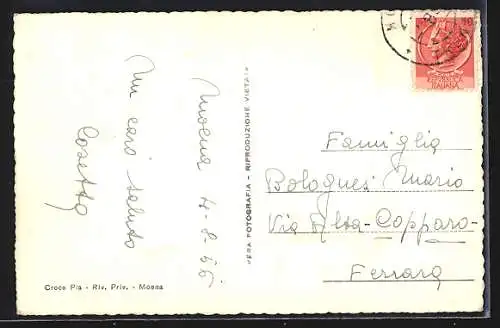 Moena 4-8-56
Un caro saluto
Cosetta
VERA FOTOGRAFIA - RIPRODUZIONE VIETATA
Croce Pia - Riv. Priv. - Moena
Famiglia
Bolognesi Mario
Via Alba-Copparo-
Ferrara
10
ITALIANA